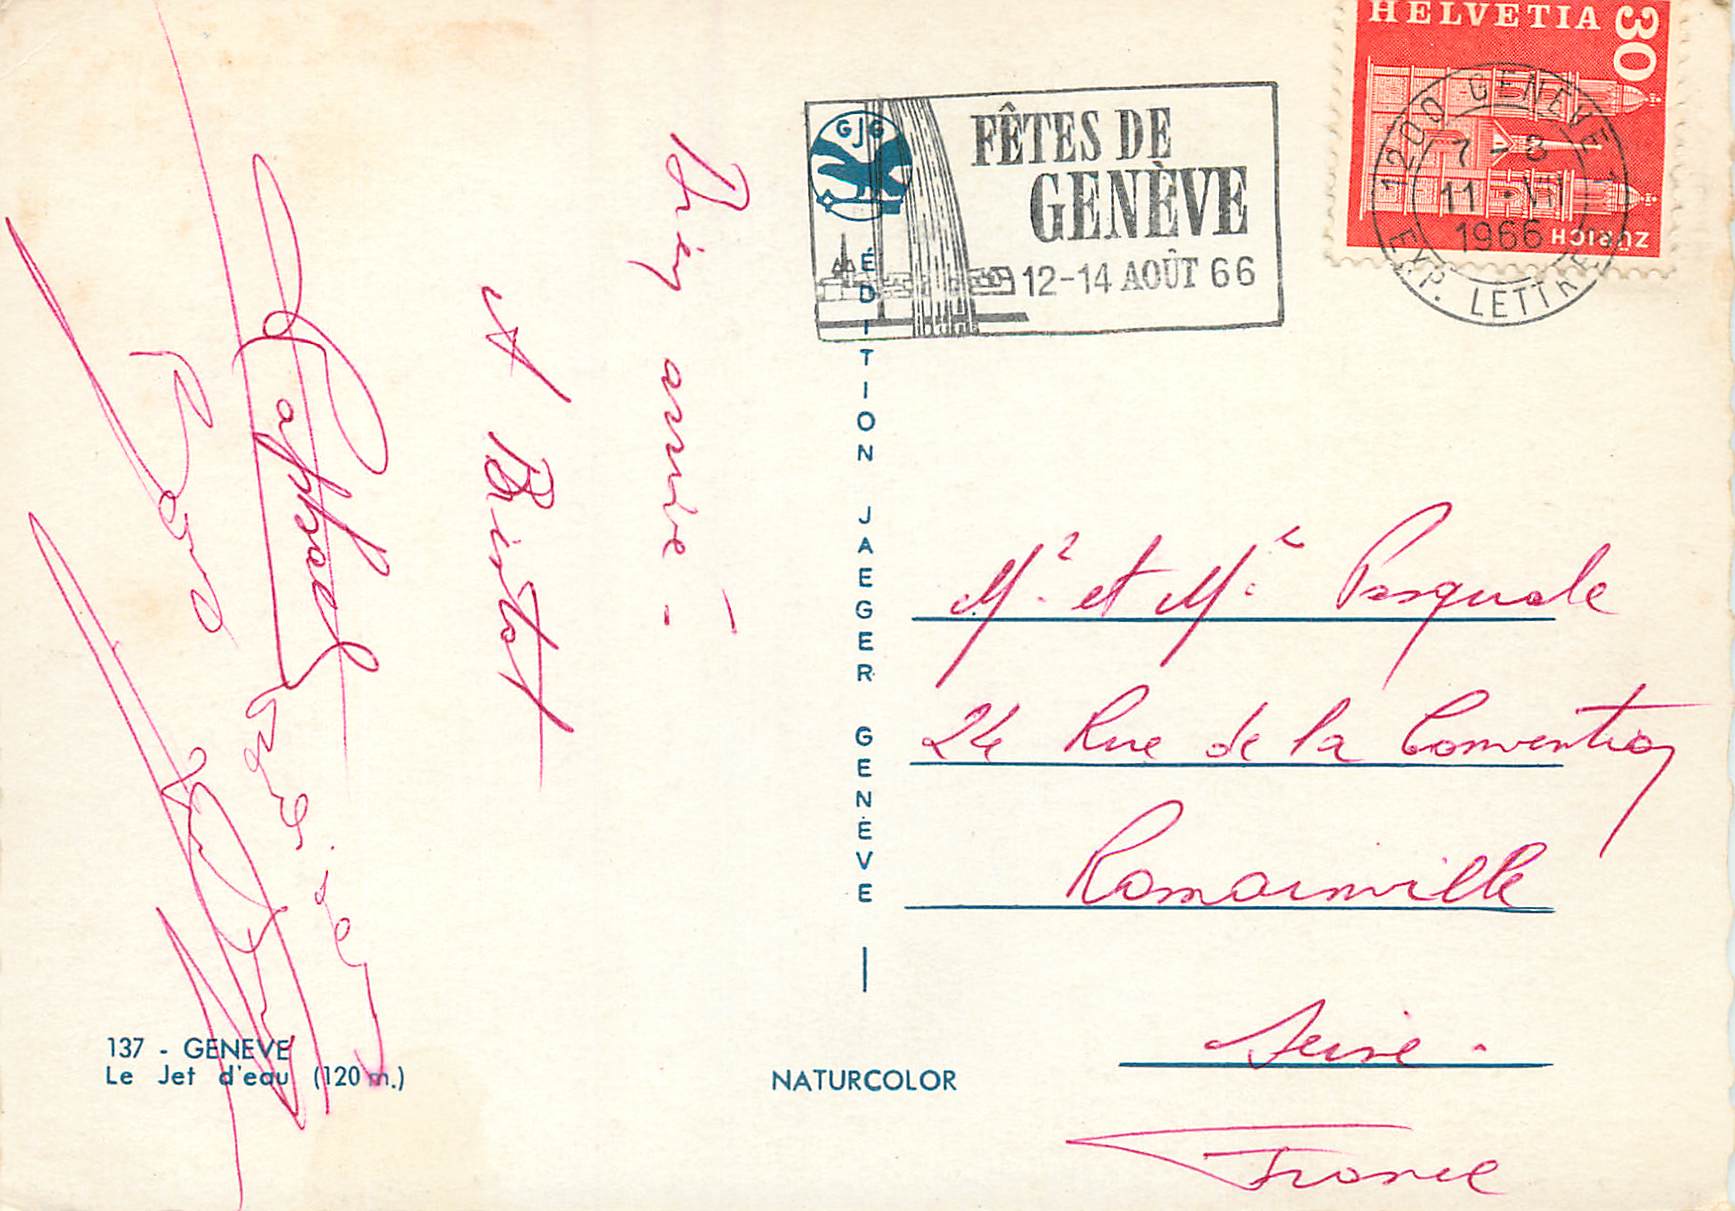 HELVETIA
30
ZÜRICH
1200 GENÈVE 1
7-8
11.VII
1966
EXP. LETTRES
GJG
FÊTES DE
GENÈVE
12-14 AOÛT 66
ÉDITION JAEGER GENÈVE
Bien arrivé
A Bientot
Raphael
Mr. et Me. Pasquale
24 Rue de la Convention
Romainville
Seine.
France
137 - GENEVE
Le Jet d'eau (120 m.)
NATURCOLOR